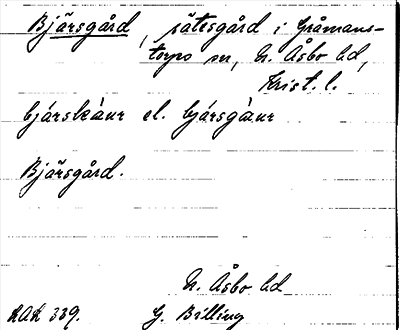 Bjärsgård, sätesgård i Gråmans-
torps sn, N. Åsbo hd,
Krist. l.
bjárskànr el. bjársgànr
Bjärsgård.
N. Åsbo hd
LAK 339. G. Billing